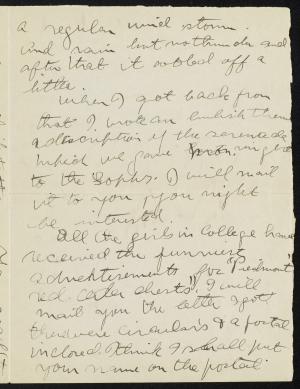 a regular wind storm
and rain but no thunder and
after that it cooled off a
little.
When I got back from
that I wrote an English theme
a description of the serenade
which we gave Mon. night
to the Sophs. I will mail
it to you if you might
be interested.
All the girls in College have
received the funniest
advertisements for "Piedmont
red-cedar chests", I will
mail you the letter I got
there were circulars & a postal
inclosed. I think I shall put
your name on the postal